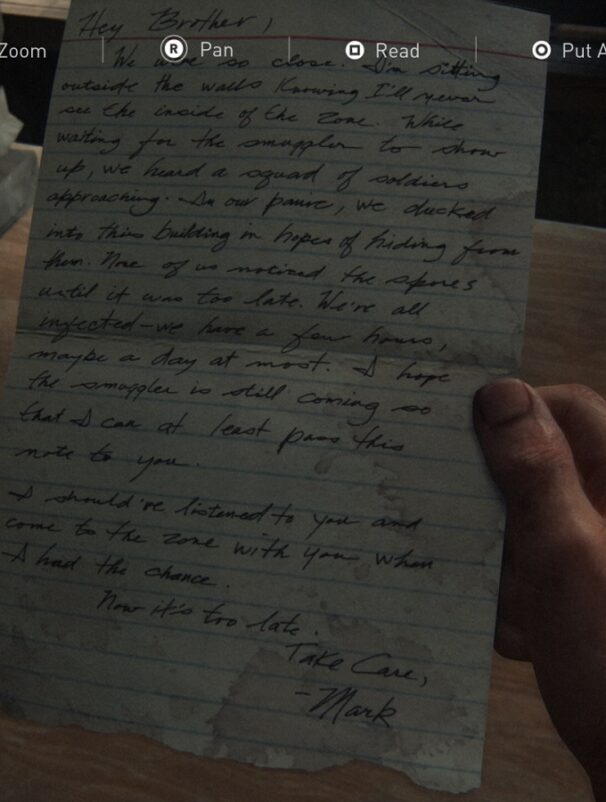 Hey Brother,
Zoom
R Pan
Read
Put A
We were so close. I'm sitting
outside the walls knowing I'll never
see the inside of the zone. While
waiting for the smuggler to show
up, we heard a squad of soldiers
approaching. In our panic, we ducked
into this building in hopes of hiding from
them. None of us noticed the spores
until it was too late. We're all
infected - we have a few hours,
maybe a day at most. I hope
the smuggler is still coming so
that I can at least pass this
note to you.
I should've listened to you and
come to the zone with you when
I had the chance.
Now it's too late.
Take Care,
- Mark